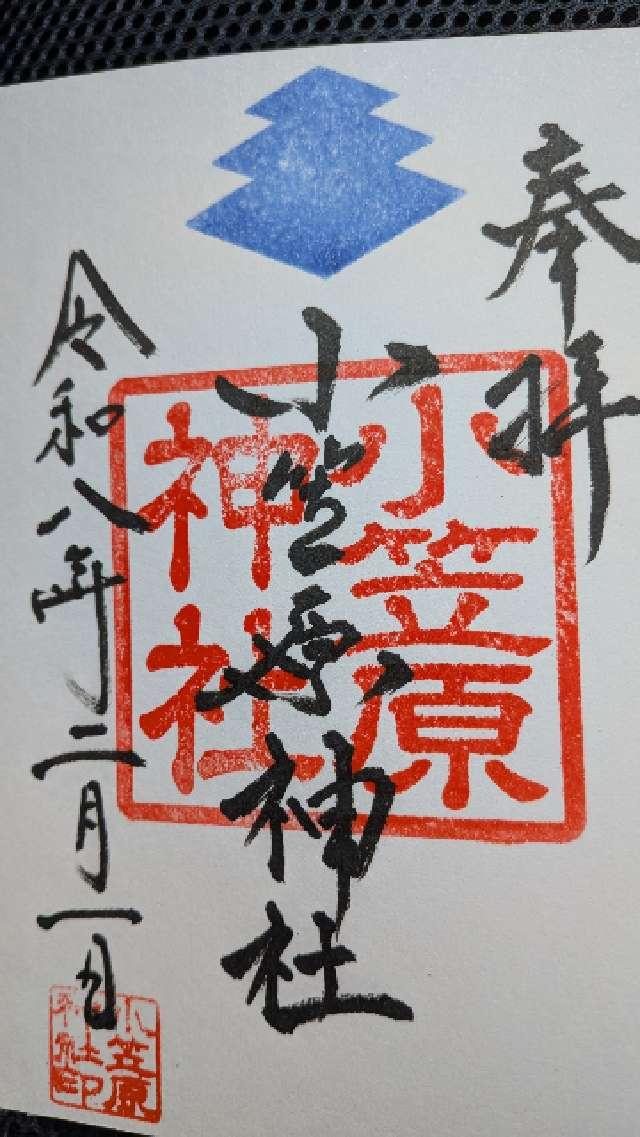 奉拝
小笠原神社
小笠原
神社
令和八年二月一日
小笠原
神社印